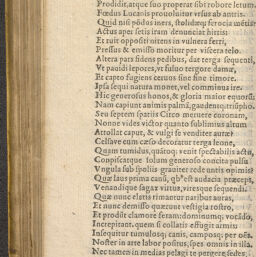 Prodidit, atque suo properat sibi robore letum.
Fœdus Lucanis prouoluitur vrsus ab antris.
Quid nisi põdus iners, stolidæq; ferocia mẽtis?
Actus aper setis iram denunciat hirtis:
Et ruit oppositi nitens in vulnera ferri,
Pressus & emisso moritur per viscera telo.
Altera pars fidens pedibus, dat terga sequenti,
Vt pauidi lepores, vt fuluo tergore damæ,
Et capto fugiens ceruus sine fine timore.
Ipsa sequi natura monet, vel comminus ire.
Hic generosus honos, & gloria maior equorũ:
Nam capiunt animis palmã, gaudentq; triũpho.
Seu septem spatiis Circo meruere coronam,
Nonne vides victor quanto sublimius altum
Attollat caput, & vulgi se venditet auræ?
Celsave cum cæso decoratur terga leone,
Quam tumidus, quãtoq; venit spectabilis actu,
Conpiscatque solum generoso concita pulsu
Vngula sub spoliis grauiter redeuntis opimis?
Quæ laus prima canũ, quib° est audacia præceps,
Venandique sagax virtus, viresque sequendi.
Quæ nunc elatis rimantur naribus auras,
Et nunc demisso quærunt vestigia rostro,
Et produnt clamore feram: dominumq; vocãdo,
Increpitant. quem si collatis effugit armis
Insequitur tumulosq; canis, camposq; per omneis.
Noster in arte labor positus, spes omnis in illa.
Nec tamen in medias pelagi te pergere sedes,